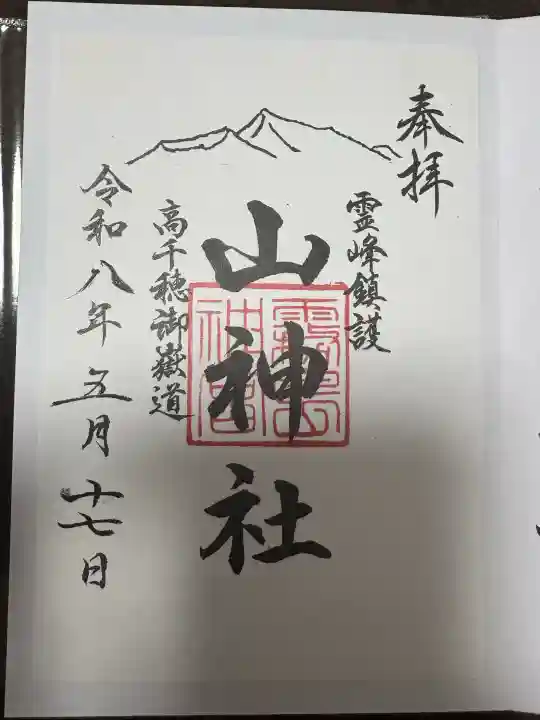 奉拝
霊峰鎮護
山神社
霧島
神宮
高千穂御嶽道
令和八年五月十七日